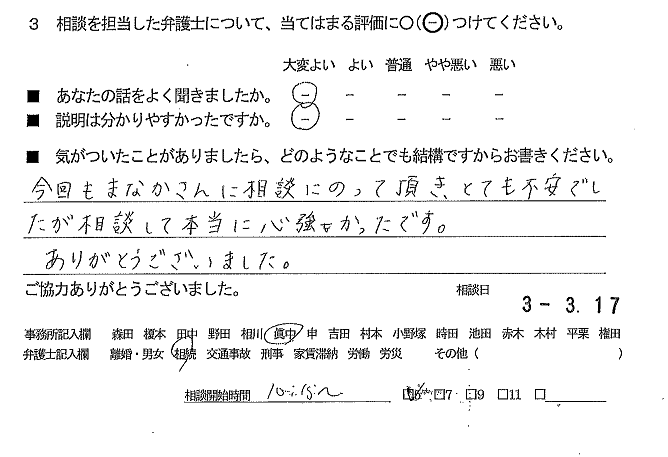 3 相談を担当した弁護士について、当てはまる評価に○(－)つけてください。
大変よい よい 普通 やや悪い 悪い
■ あなたの話をよく聞きましたか。 － － － － －
■ 説明は分かりやすかったですか。 － － － － －
■ 気がついたことがありましたら、どのようなことでも結構ですからお書きください。
今回もまなかさんに相談にのって頂き、とても不安でし
たが相談して本当に心強かったです。
ありがとうございました。
ご協力ありがとうございました。
相談日 3-3.17
事務所記入欄 森田 榎本 田中 野田 相川 眞中 申 吉田 村本 小野塚 時田 池田 赤木 木村 平栗 権田
弁護士記入欄 離婚・男女 相続 交通事故 刑事 家賃滞納 労働 労災 その他( )
相談開始時間 □7 □9 □11 □